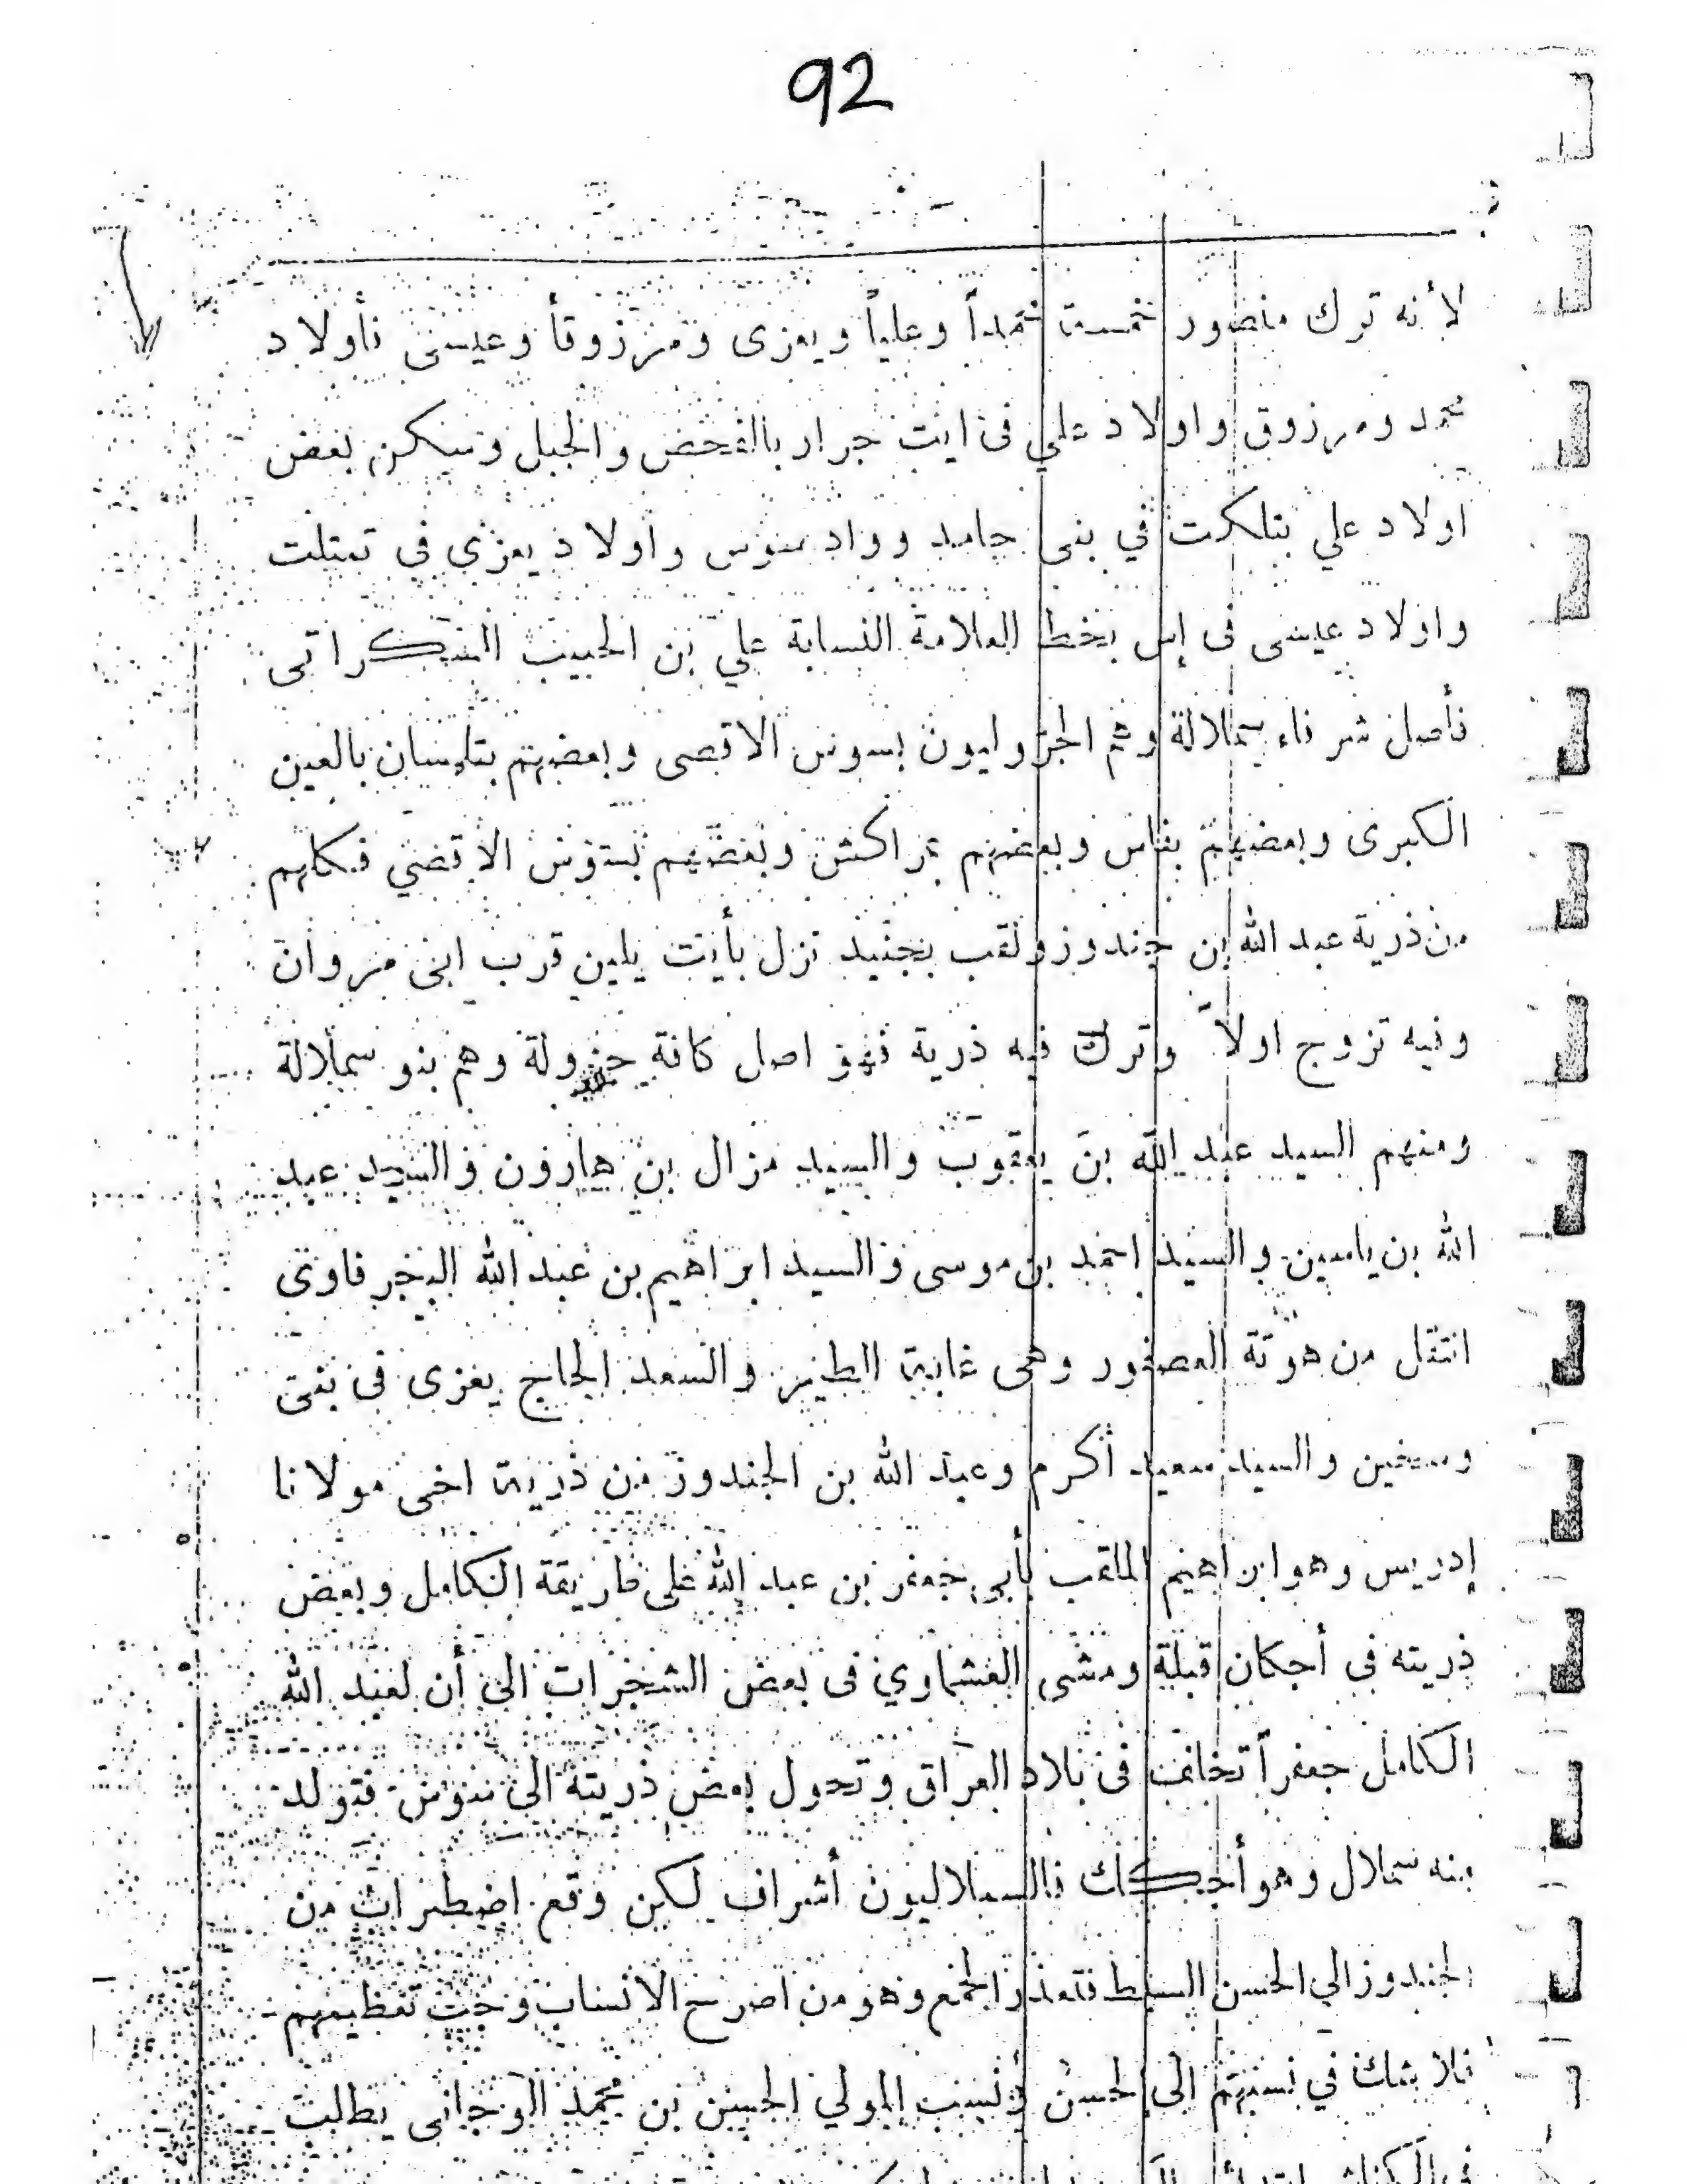 92
لأنه ترك منصور خمسة محمداً وعلياً ويعزى ومرزوقاً وعيسى فأولاد
محمد ومرزوق واولاد علي فى ايت جرار بالفحص والجبل وسكن بعض
اولاد علي بتلكرت في بنى حامد وواد سوس واولاد يعزي فى تمتلت
واولاد عيسى فى إس بخط العلامة النسابة علي بن الحبيب السكراتى
فأصل شرفاء سملالة وثم الجزوليون بسوس الاقصى وبعضهم بتلمسان بالعين
الكبرى وبعضهم بفاس وبعضهم بمراكش وبعضهم بسوس الاقصي فكلهم
من ذرية عبد الله بن جندوز ولقب بجنيد نزل بأيت يلين قرب ابنى مروان
وفيه تزوج اولاً وترك فيه ذرية فهو اصل كافة جزولة وهم بنو سملالة
ومنهم السيد عبد الله بن يعقوب والسيد مزال بن هارون والسيد عبد
الله بن ياسين والسيد احمد بن موسى والسيد ابراهيم بن عبد الله
انتقل من هوتة العصفور وهى غابة الطير والسعد الحاج يعزى فى بنى
وسخين والسيد سعيد أكرم وعبد الله بن الجندوز من ذرية اخى مولانا
إدريس وهو ابراهيم الملقب بأبى جعفر بن عبد الله على طريقة الكامل وبعض
ذريته في أجكان قبلة ومشى العشماوي فى بعض الشجرات الى أن لعبد الله
الكامل جعفراً تخلف فى بلاد العراق وتحول بعض ذريته الى سوس فتولد
منه سملال وهو فالسملاليون أشراف لكن وقع اضطراب من
الجندوز الي الحسن السبط فتعذر الجمع وهو من اصرح الانساب وجب تعظيمهم
فلا شك في نسبهم الى الحسن ونسب المولي الحسن بن محمد الوجانى يطالب